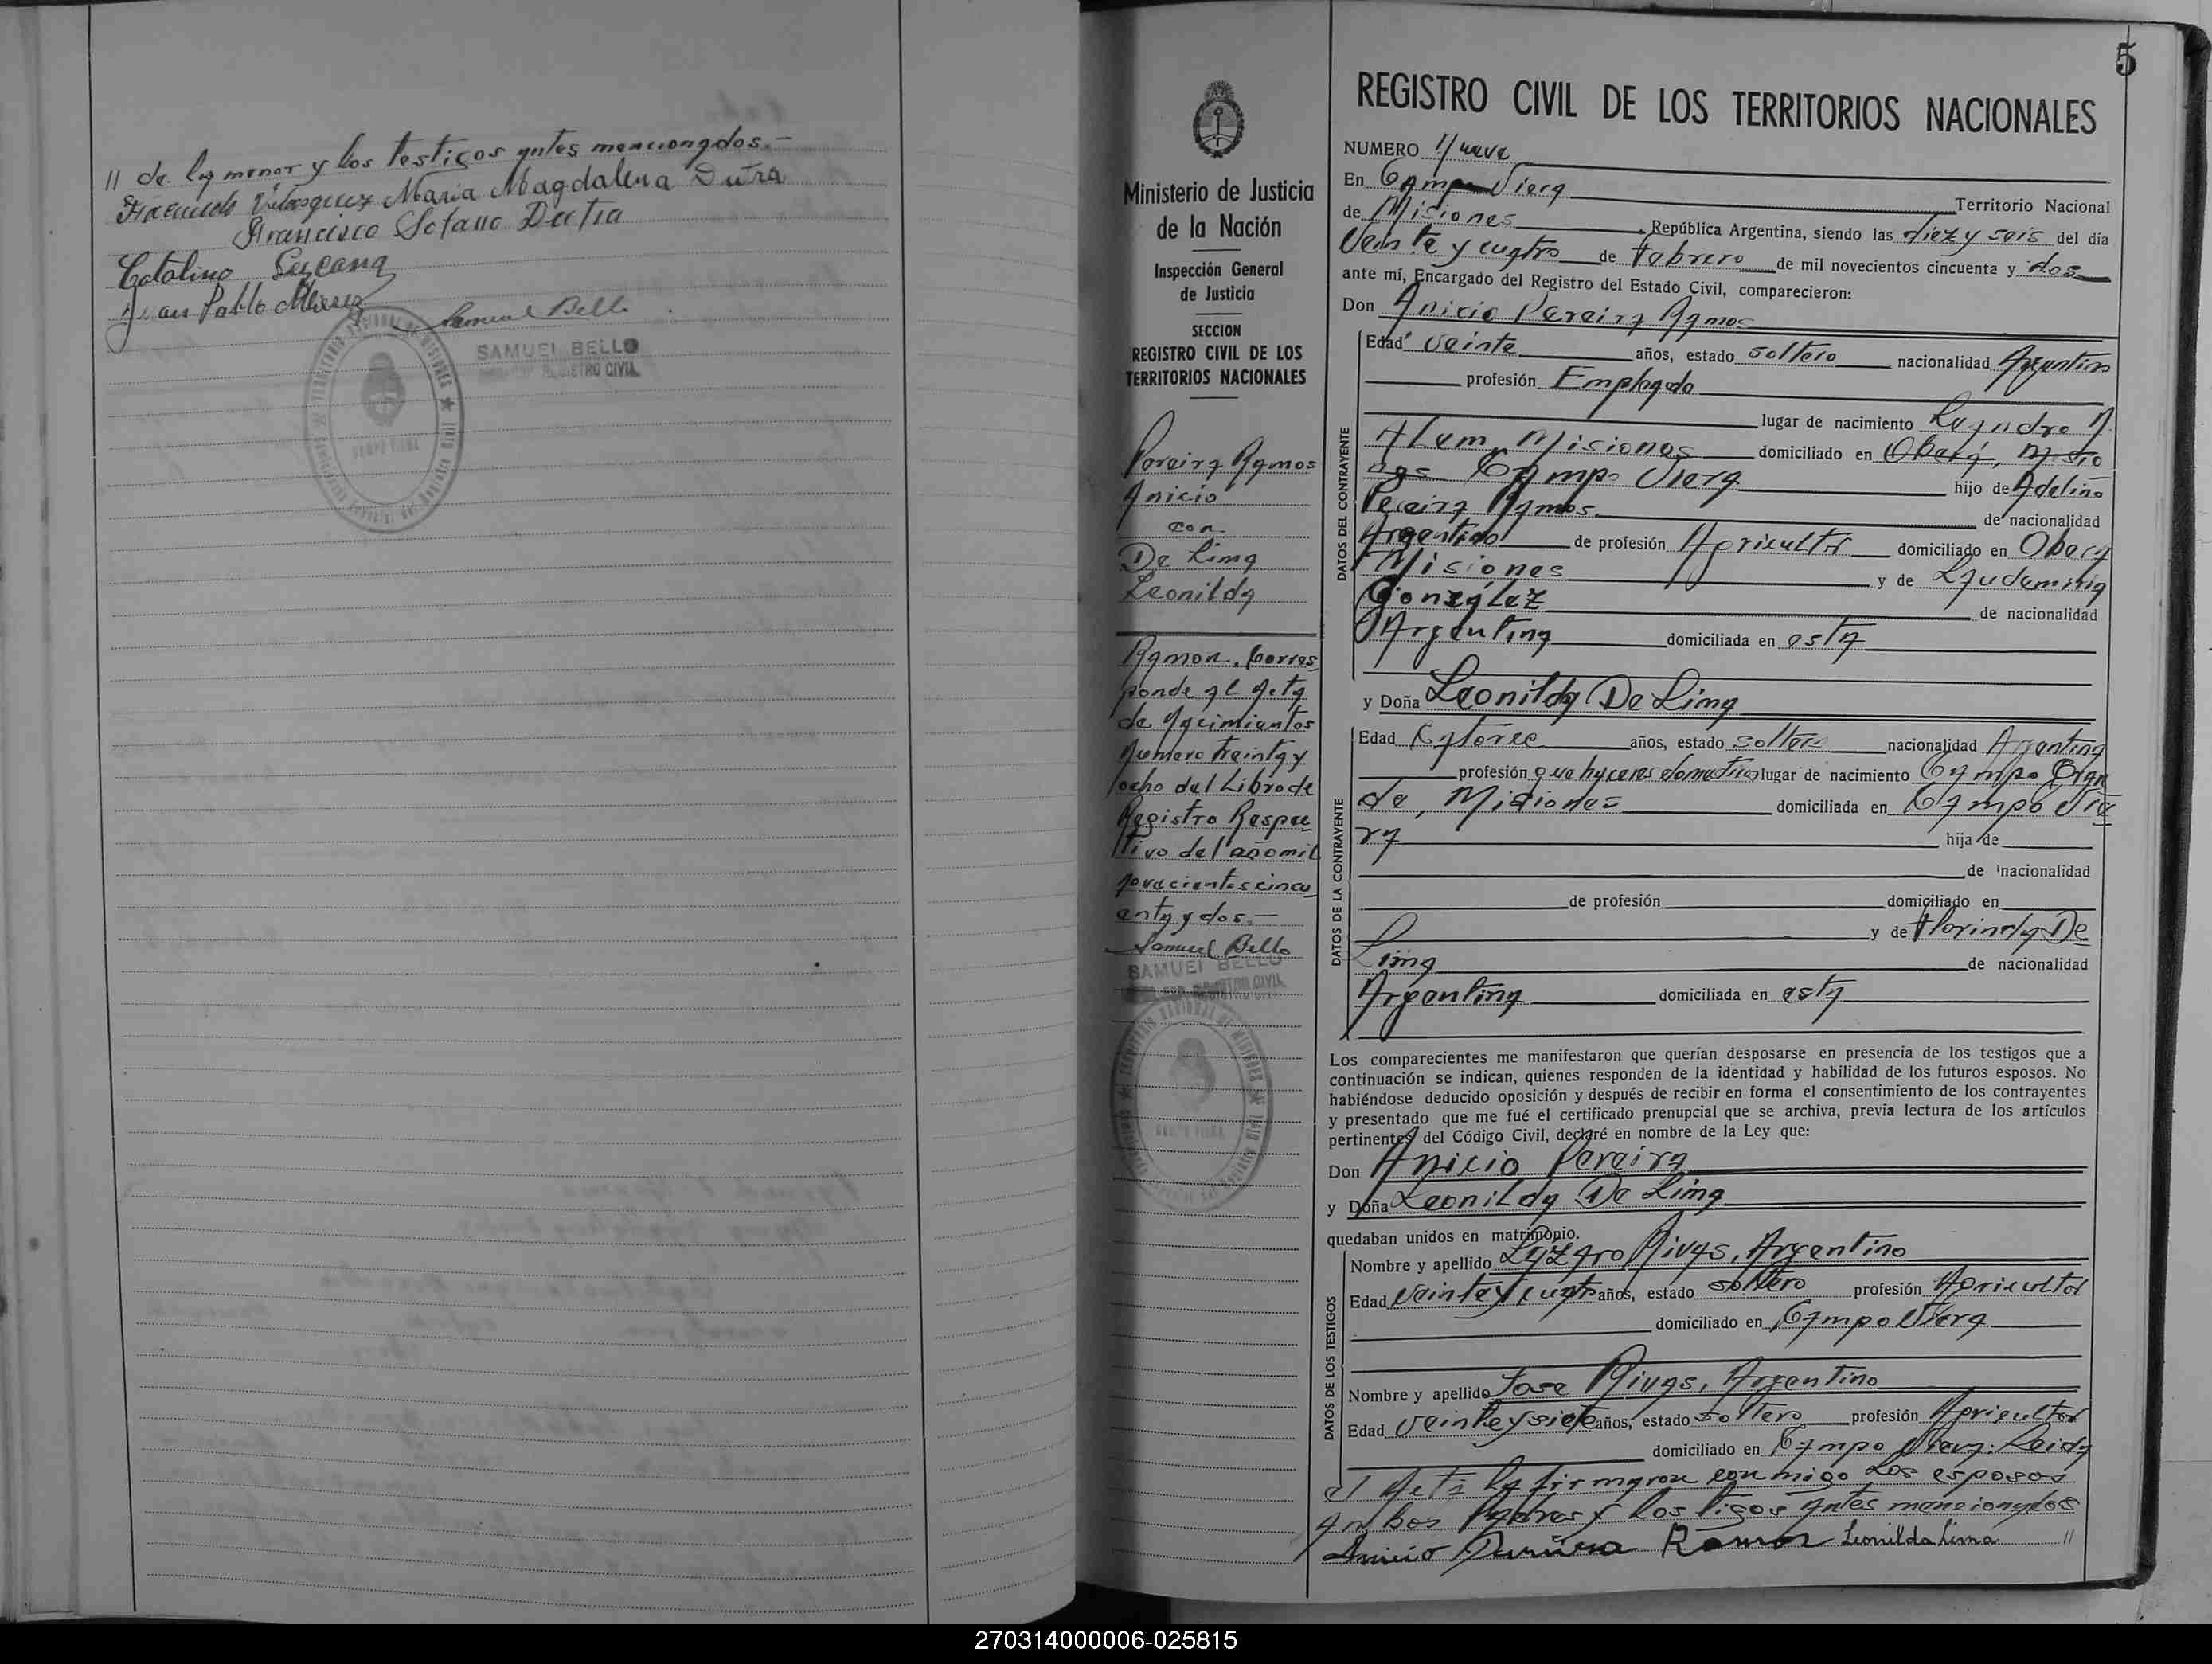 // de la menor y los testigos antes mencionados.—
Velasquez Maria Magdalena Dutra
Francisco Solano Dutra
Catalino Lezcano
Juan Pablo
Samuel Bello
SAMUEL BELLO
REGISTRO CIVIL
5
Ministerio de Justicia
de la Nación
Inspección General
de Justicia
SECCION
REGISTRO CIVIL DE LOS
TERRITORIOS NACIONALES
Pereira Ramos
Anicio
con
De Lima
Leonilda
Ramon. Corres
ponde al Acta
de Nacimientos
Numero treinta y
ocho del Libro de
Registro Respec
tivo del año mil
novecientos cincu
enta y dos.—
Samuel Bello
SAMUEL BELLO
REGISTRO CIVIL
REGISTRO CIVIL DE LOS TERRITORIOS NACIONALES
NUMERO Nueve
En Campo Viera Territorio Nacional
de Misiones República Argentina, siendo las diez y seis del día
Veinte y cuatro de Febrero de mil novecientos cincuenta y dos
ante mí, Encargado del Registro del Estado Civil, comparecieron:
Don Anicio Pereira Ramos
DATOS DEL CONTRAYENTE
Edad Veinte años, estado soltero nacionalidad Argentino
profesión Empleado
lugar de nacimiento Leandro N.
Alem, Misiones domiciliado en Oberá, Misio
nes Campo Viera hijo de Adelino
Pereira Ramos de nacionalidad
Argentino de profesión Agricultor domiciliado en Obera
Misiones y de Laudemira
González de nacionalidad
Argentina domiciliada en esta
y Doña Leonilda De Lima
DATOS DE LA CONTRAYENTE
Edad Catorce años, estado soltera nacionalidad Argentina
profesión quehaceres domesticos lugar de nacimiento Campo Gran
de, Misiones domiciliada en Campo Vie
ra hija de
de nacionalidad
de profesión domiciliado en
y de Florinda De
Lima de nacionalidad
Argentina domiciliada en esta
Los comparecientes me manifestaron que querían desposarse en presencia de los testigos que a
continuación se indican, quienes responden de la identidad y habilidad de los futuros esposos. No
habiéndose deducido oposición y después de recibir en forma el consentimiento de los contrayentes
y presentado que me fué el certificado prenupcial que se archiva, previa lectura de los artículos
pertinentes del Código Civil, declaré en nombre de la Ley que:
Don Anicio Pereira
y Doña Leonilda De Lima
quedaban unidos en matrimonio.
DATOS DE LOS TESTIGOS
Nombre y apellido Lazaro Rivas, Argentino
Edad Veinte y cuatro años, estado soltero profesión Agricultor
domiciliado en Campo Viera
Nombre y apellido Jose Rivas, Argentino
Edad Veinte y siete años, estado soltero profesión Agricultor
domiciliado en Campo Viera: Leida
el Acta la firmaron conmigo Los esposos
ambos Padres y los tigos antes mencionados
Anicio Pereira Ramos Leonilda Lima //
270314000006-025815